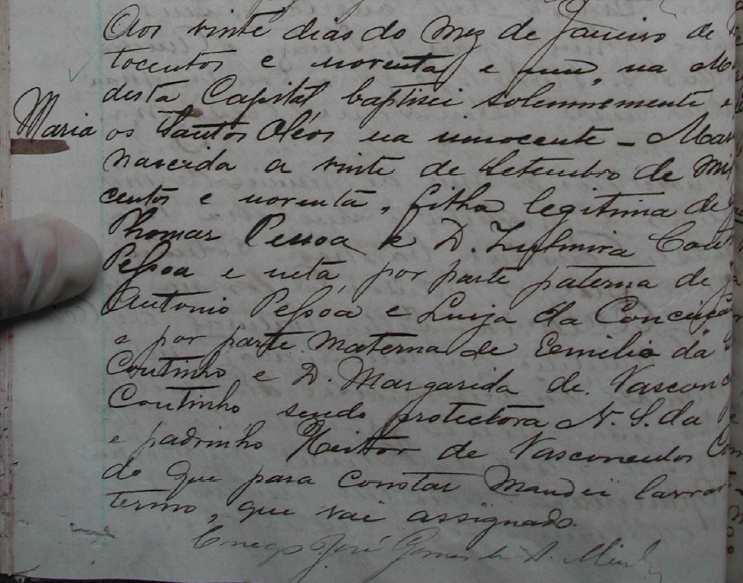 Aos vinte dias do mez de Janeiro de
tocentos e noventa e um, na M
desta Capital baptisei solemnemente e
Maria
os Santos Oleos na innocente - Mar
nascida a vinte de Setembro de mil
centos e noventa, filha legitima de
Thomas Pessoa e D. Zulmira Cout
Pessoa e neta por parte paterna de
Antonio Pessôa e Luiza da Conceição
e por parte materna de Emilio da
Coutinho e D. Margarida de Vasconc
Coutinho sendo protectora N. S. da
e padrinho Heitor de Vasconcellos Cou
do que para constar mandei lavrar
termo, que vai assignado.
Conego José Gomes de A.